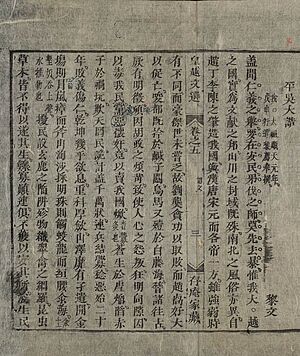 平吳大誥
黎文
蓋聞仁義之舉要在安民弔伐之師莫先去暴惟我大越
之國實為文獻之邦山川之封域既殊南北之風俗亦異自
趙丁李陳之肇造我國與漢唐宋元而各帝一方雖強弱時
有不同而豪傑世未嘗乏故劉龔貪功以取敗而趙卨好大
皇越文選 卷之五 誥文 三 存庵家藏
以促亡唆都既擒於鹹子關烏馬又殪於白藤海嵇諸往古
厥有明徵頃因胡政之煩苛致使人心之怨叛狂明伺隙因
以毒我民偽黨懷奸竟以賣我國焮蒼生於虐焰陷赤
子於禍坑欺天罔民詭計蓋千萬狀連兵結釁稔惡殆二十
年敗義傷仁乾坤幾乎欲息重科厚歛山澤靡有孑遺開金
塲則冒嵐瘴而斧山淘沙採明珠則觸蛟龍而絙腰汆海
擾民設玄鹿之陷阱殄物織翠禽之網羅昆虫
草木皆不得以遂其生鰥寡顛連俱不獲以安其所浚生民